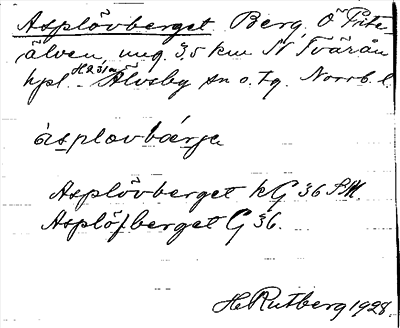 Asplövberget. Berg, Ö Pite
älven, ung. 3,5 km N Tvärån
hpl. H 231 m Älvsby sn o. tg. Norrb. l.
àsplœvbǽrje
Asplövberget kG 36 SM.
Asplöfberget G 36.
H. Rutberg 1928.